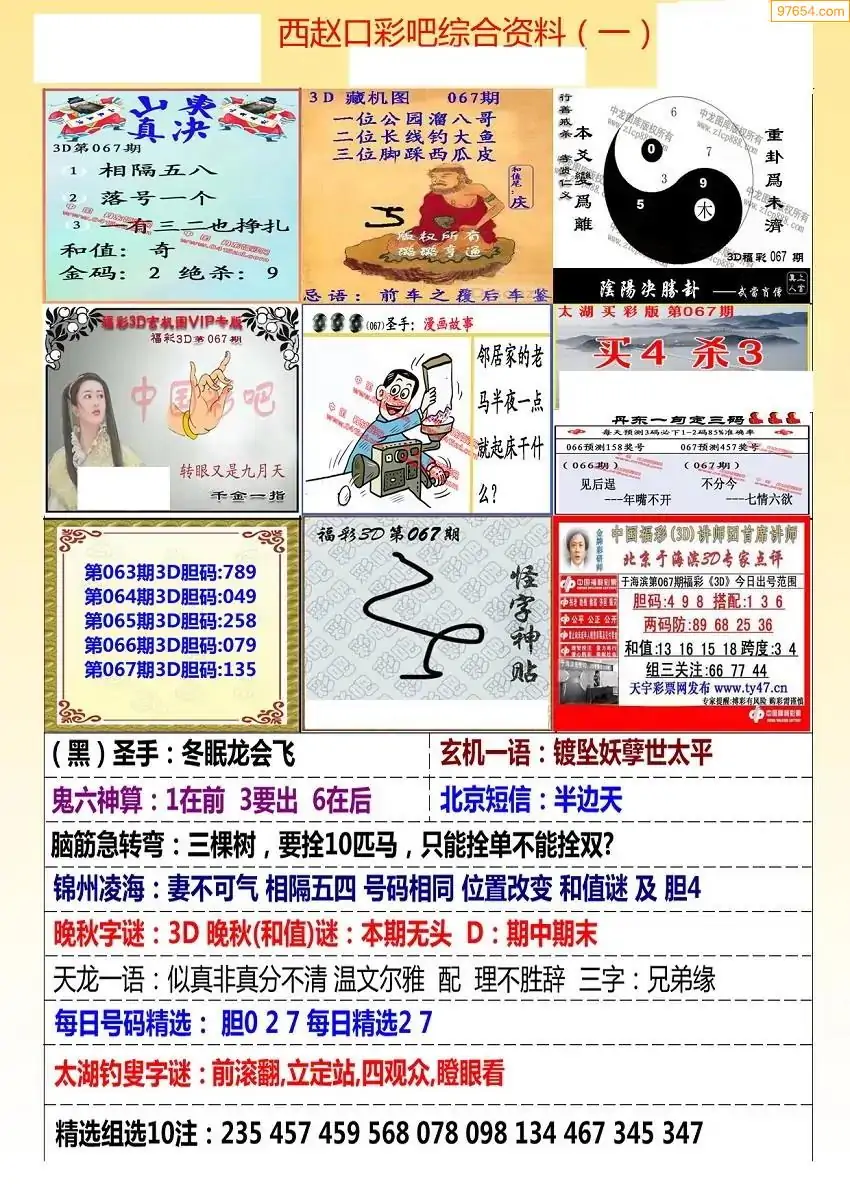 97654.com
西赵口彩吧综合资料（一）
山夷
真决
3D第067期
1 相隔五八
2 落号一个
3 一有三二也挣扎
和值: 奇
金码: 2 绝杀: 9
3D 藏机图 067期
一位公园溜八哥
二位长线钓大鱼
三位脚踩西瓜皮
和值笔:庆
版权所有
忌语: 前车之覆后车鉴
行善戒杀 孝贤仁义
本爻變爲離
中龙图库版权所有
www.zlcp888.com
6
0
7
3
9
5
木
重卦爲未濟
3D福彩 067 期
陰陽决勝卦 ——武當肖僧
福彩3D玄机图VIP专版
福彩3D第067期
中国彩吧
转眼又是九月天
千金一指
(067)圣手: 漫画故事
邻居家的老
马半夜一点
就起床干什
么?
太湖买彩版 第067期
买4 杀3
丹东一句定三码
每天预测3码必下1-2码85%准确率
066预测158奖号 067预测457奖号
(066期) (067期)
见后逞 不分今
---年嘴不开 ----七情六欲
第063期3D胆码:789
第064期3D胆码:049
第065期3D胆码:258
第066期3D胆码:079
第067期3D胆码:135
福彩3D第067期
怪字神贴
金牌彩研师
中国福彩(3D)讲师团首席讲师
北京于海滨3D专家点评
中国福利彩票
于海滨第067期福彩《3D》今日出号范围
胆码:4 9 8 搭配:1 3 6
两码防:89 68 25 36
公平 公正 公开
和值:13 16 15 18 跨度:3 4
组三关注:66 77 44
天宇彩票网发布 www.ty47.cn
专家提醒:搏彩有风险 购彩需谨慎
中国福利彩票
(黑)圣手:冬眠龙会飞
玄机一语:镀坠妖孽世太平
鬼六神算:1在前 3要出 6在后
北京短信:半边天
脑筋急转弯:三棵树，要拴10匹马，只能拴单不能拴双?
锦州凌海:妻不可气 相隔五四 号码相同 位置改变 和值谜 及 胆4
晚秋字谜:3D 晚秋(和值)谜:本期无头 D:期中期末
天龙一语:似真非真分不清 温文尔雅 配 理不胜辞 三字:兄弟缘
每日号码精选: 胆0 2 7 每日精选2 7
太湖钓叟字谜:前滚翻,立定站,四观众,瞪眼看
精选组选10注:235 457 459 568 078 098 134 467 345 347